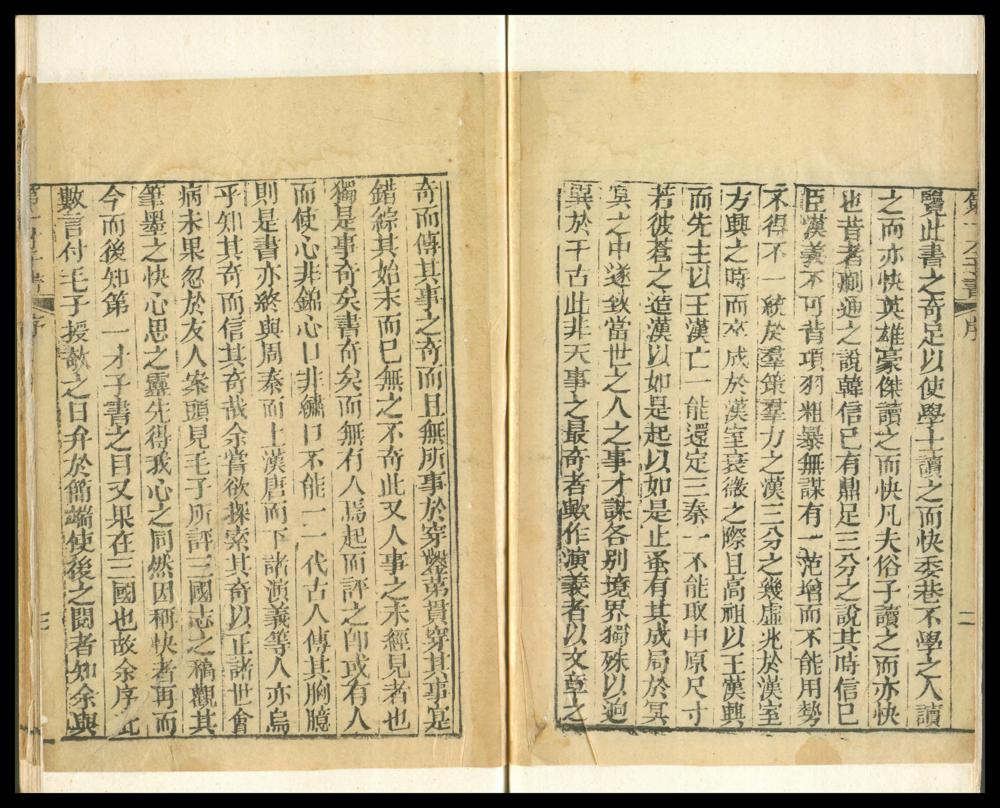 第一才子書 序 二
覽此書之奇足以使學士讀之而快委巷不學之人讀
之而亦快英雄豪傑讀之而快凡夫俗子讀之而亦快
也昔者蒯通之說韓信已有鼎足三分之說其時信已
臣漢義不可背項羽粗暴無謀有一范增而不能用勢
不得不一統於羣策羣力之漢三分之幾虛兆於漢室
方興之時而卒成於漢室衰微之際且高祖以王漢興
而先主以王漢亡一能還定三秦一不能取中原尺寸
若彼蒼之造漢以如是起以如是止蚤有其成局於冥
冥之中遂致當世之人之事才謀各别境界獨殊以迥
異於千古此非天事之最奇者歟作演義者以文章之
奇而傳其事之奇而且無所事於穿鑿第貫穿其事寔
錯綜其始末而已無之不奇此又人事之未經見者也
獨是事奇矣書奇矣而無有人焉起而評之即或有人
而使心非錦心口非繡口不能一一代古人傳其胸臆
則是書亦終與周秦而上漢唐而下諸演義等人亦烏
乎知其奇而信其奇哉余嘗欲探索其奇以正諸世會
病未果忽於友人案頭見毛子所評三國志之稿觀其
筆墨之快心思之靈先得我心之同然因稱快者再而
今而後知第一才子書之目又果在三國也故余序此
數言付毛子授之日弁於簡端使後之閱者知余與
第一才子書 序